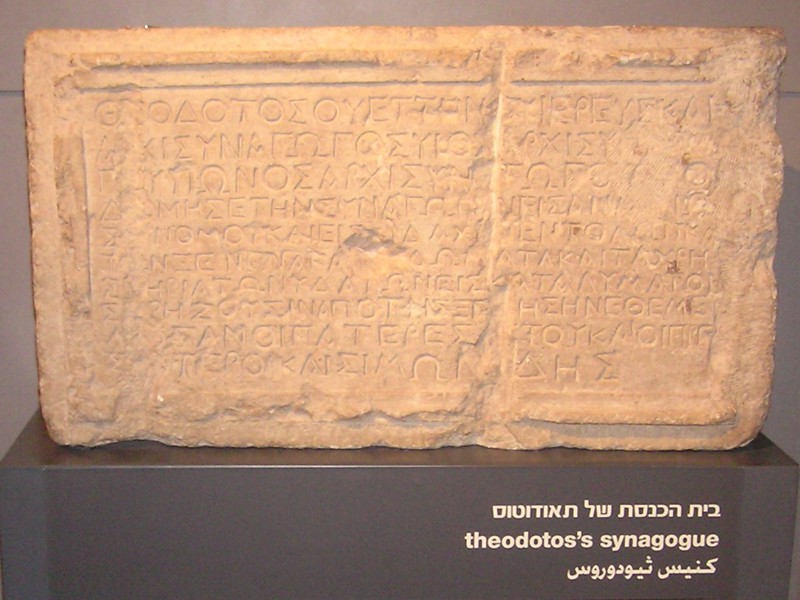 ΘΕΟΔΟΤΟΣ ΟΥΕΤΤΗΝΟΥ ΙΕΡΕΥΣ ΚΑΙ
ΑΡΧΙΣΥΝΑΓΩΓΟΣ ΥΙΟΣ ΑΡΧΙΣΥ
ΥΙΩΝΟΣ ΑΡΧΙΣΥΝ ΓΩΓΟΥ
ΔΟΜΗΣΕ ΤΗΝ ΣΥΝΑΓΩΓΗΝ ΕΙΣ ΑΝΑ
ΝΟΜΟΥ ΚΑΙ ΕΙΣ ΔΑΧΗΝ ΕΝΤΟΛΩΝ
ΤΟΝ ΞΕΝΩΝΑ ΚΑΙ ΔΩΜΑΤΑ ΚΑΙ ΤΑ ΧΡΗ
ΣΤΗΡΙΑ ΤΩΝ ΥΔΑΤΩΝ ΕΙΣ ΚΑΤΑΛΥΜΑ ΤΟΙ
ΣΧΡΗΖΟΥΣΙΝ ΑΠΟ ΤΗΣ ΞΕ ΗΣ ΗΝ ΕΘΕΜΕ
ΣΑΝ ΟΙ ΠΑΤΕΡΕΣ ΥΤΟΥ ΚΑΙ ΟΙ ΠΡΕ
ΥΤΕΡΟΙ ΚΑΙ ΣΙΜΩΝ ΔΗΣ
בית הכנסת של תאודוטוס
theodotos's synagogue
كنيس ثيودوروس